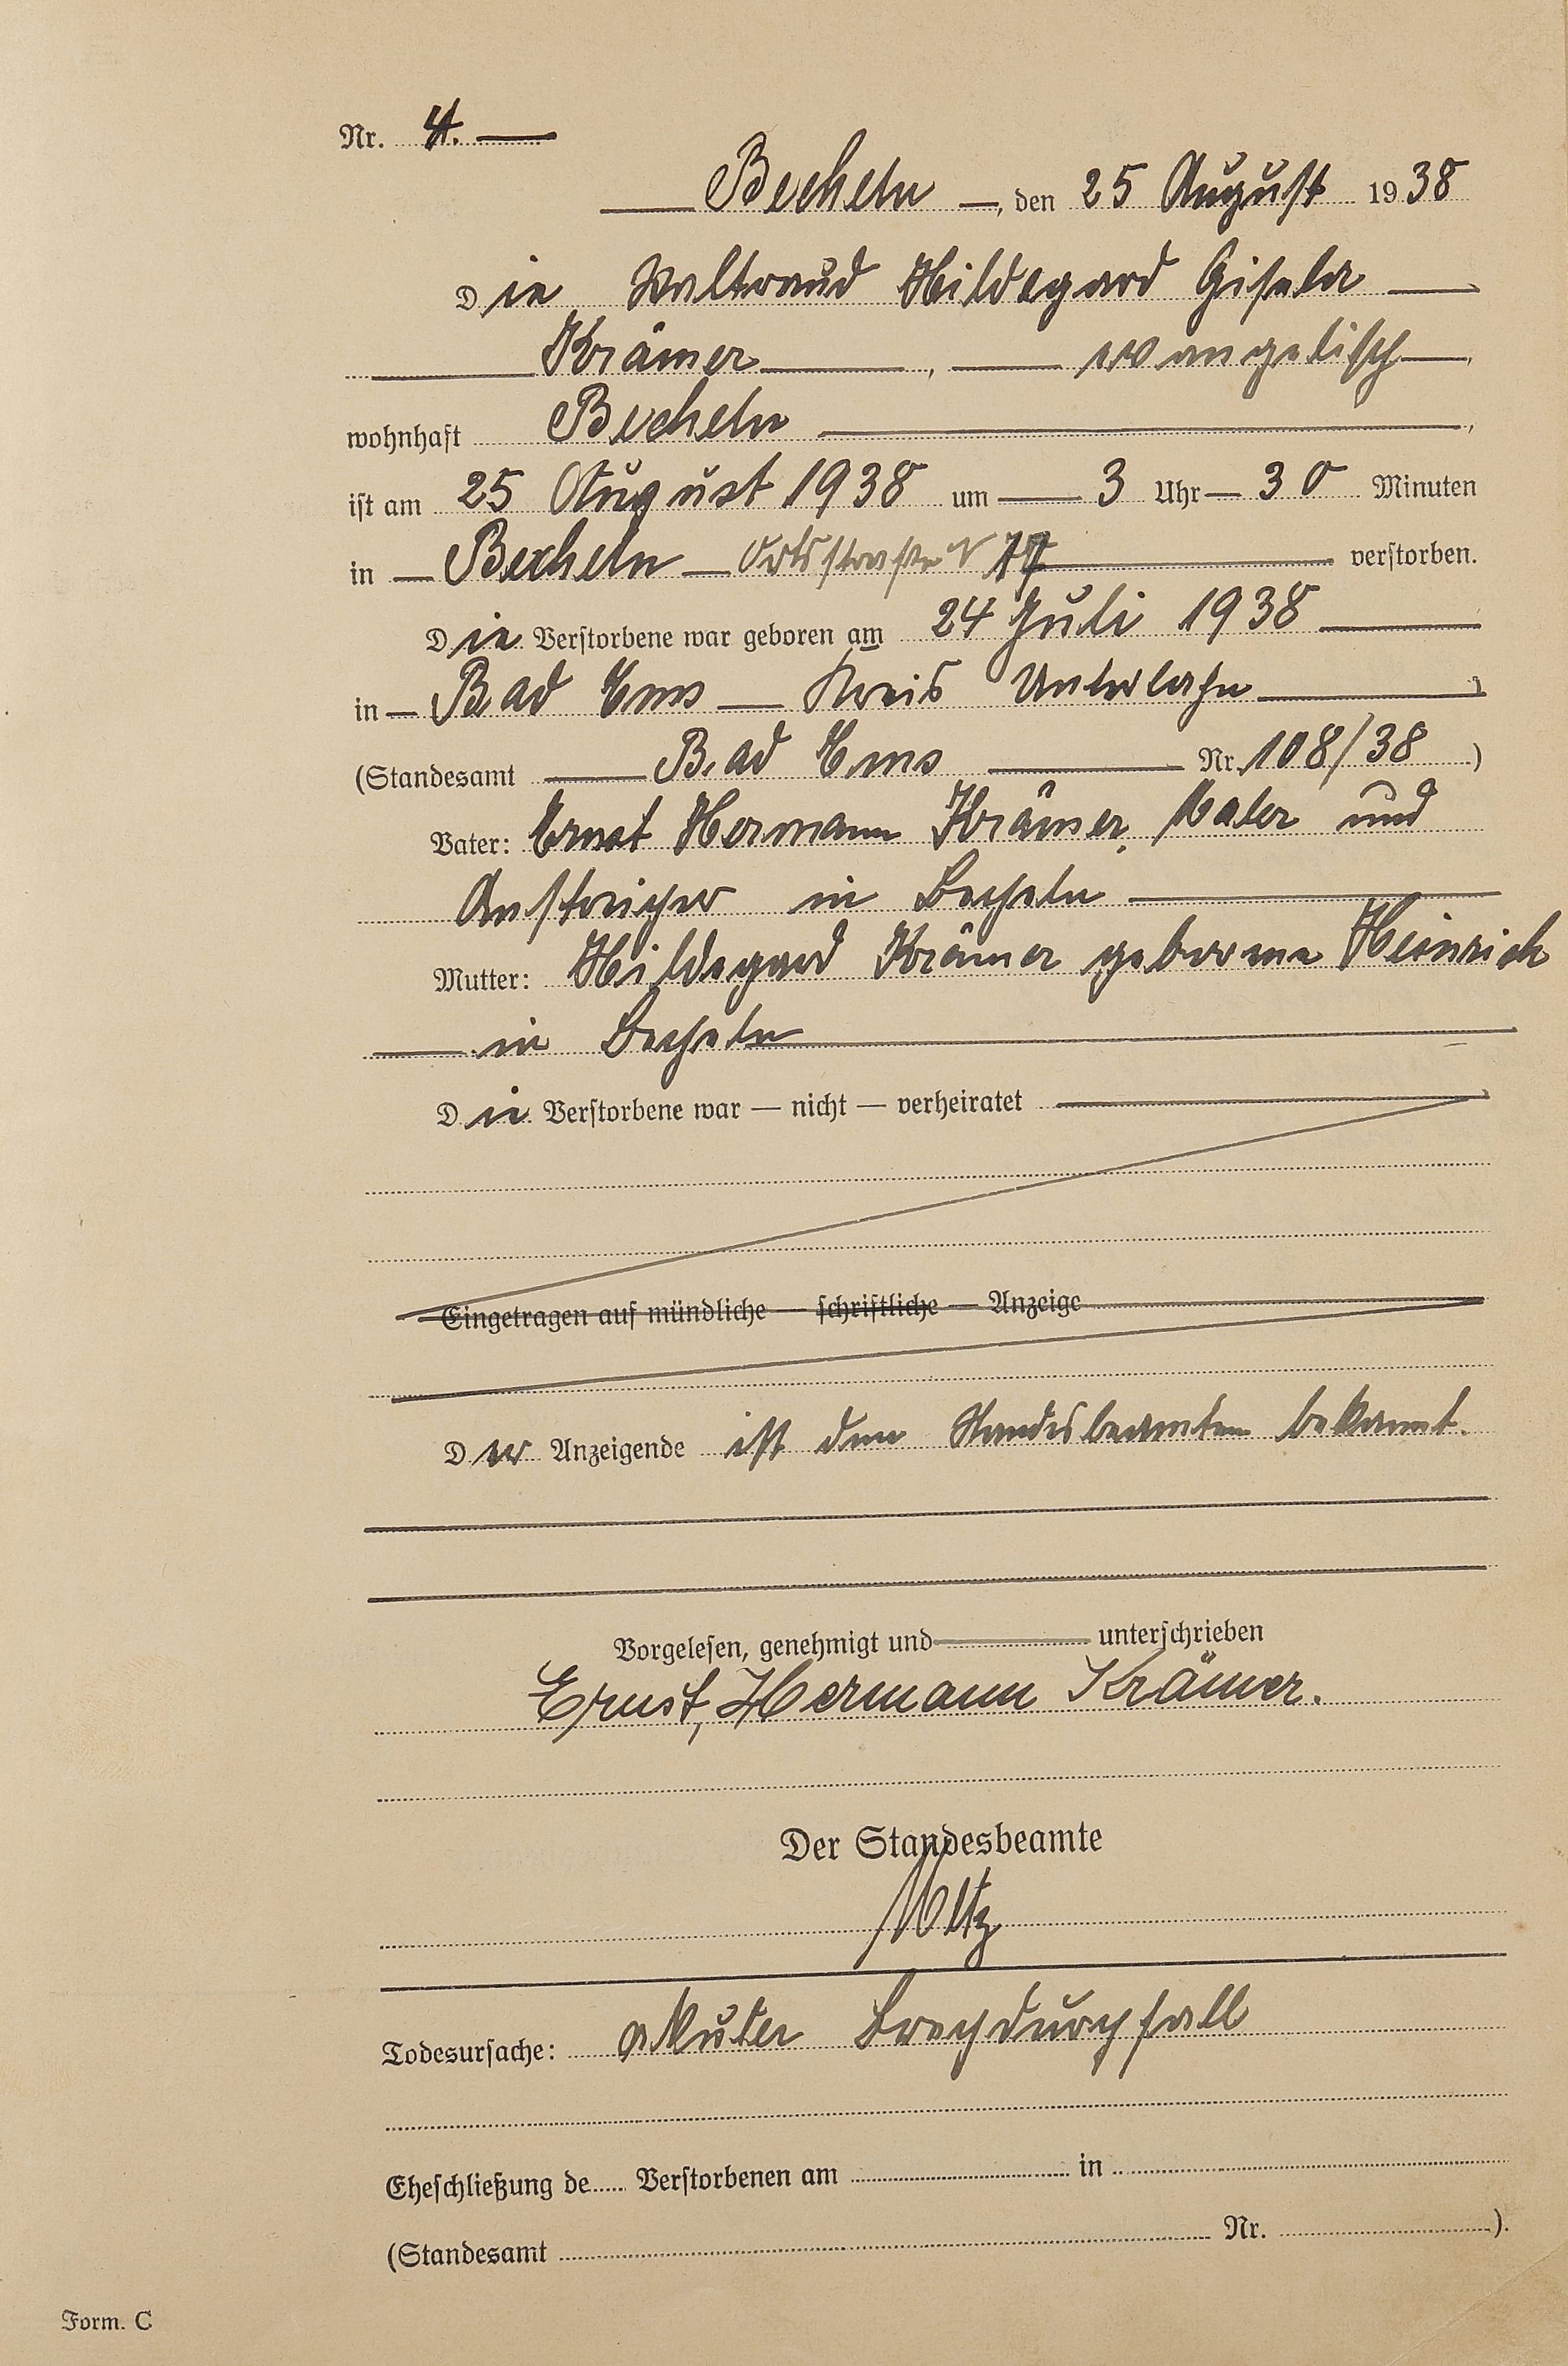 Nr. 4.
Becheln, den 25 August 1938
Die Waltraud Hildegard Gisela
Krämer, evangelisch,
wohnhaft Becheln,
ist am 25 August 1938 um 3 Uhr 30 Minuten
in Becheln Ortsstraße N 17 verstorben.
Die Verstorbene war geboren am 24 Juli 1938
in Bad Ems Kreis Unterlahn,
(Standesamt Bad Ems Nr. 108/38)
Vater: Ernst Hermann Krämer, Maler und
Anstreicher in Becheln
Mutter: Hildegard Krämer geborene Heinrich
in Becheln
Die Verstorbene war — nicht — verheiratet
Eingetragen auf mündliche — schriftliche — Anzeige
Der Anzeigende ist dem Standesbeamten bekannt.
Vorgelesen, genehmigt und unterschrieben
Ernst, Hermann Krämer.
Der Standesbeamte
Todesursache: akuter Brechdurchfall
Eheschließung de Verstorbenen am in
(Standesamt Nr. ).
Form. C